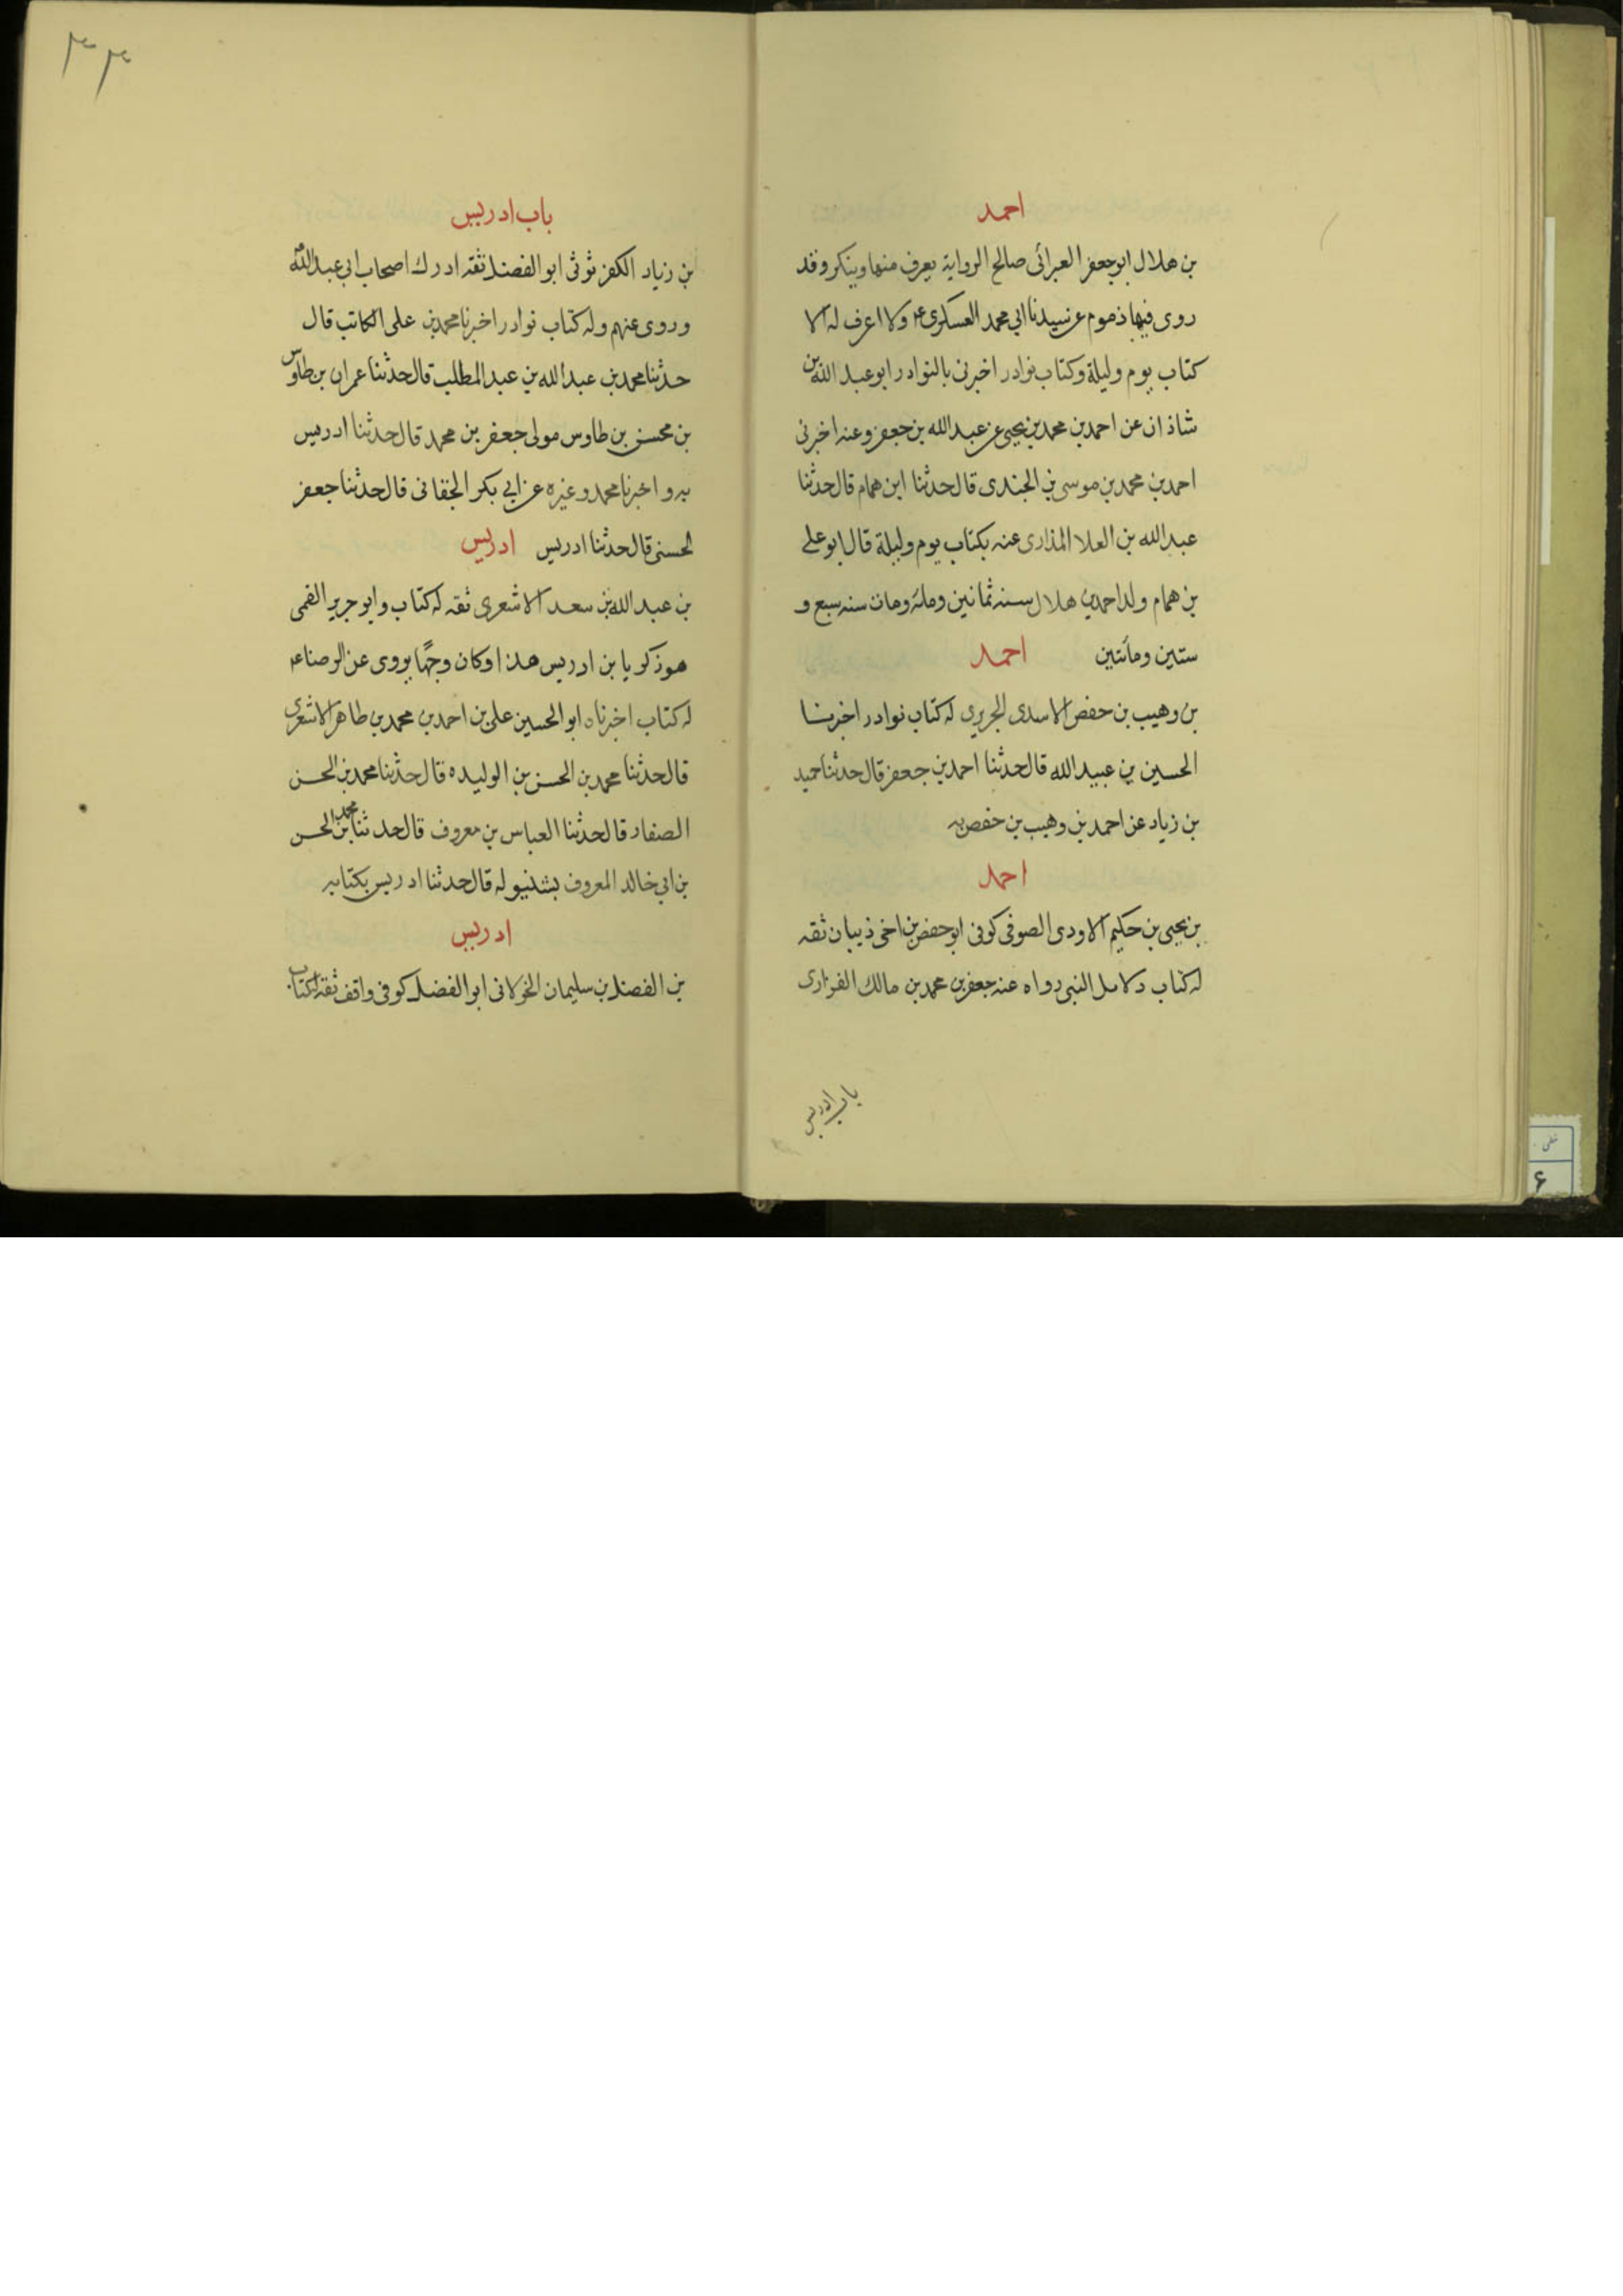 احمد
بن هلال ابو جعفر العبرائى صالح الرواية يعرف منها وينكر وقد
روى فيها ذموم عن سيدنا ابي محمد العسكرى ع ولا اعرف له الا
كتاب يوم وليلة وكتاب نوادر اخبرنى بالنوادر ابو عبد الله بن
شاذان عن احمد بن محمد بن يحيى عن عبد الله بن جعفر وعنه اخبرنى
احمد بن محمد بن موسى بن الجندى قال حدثنا ابن همام قال حدثنا
عبد الله بن العلا المذارى عنه بكتاب يوم وليلة قال ابو على
بن همام ولد احمد بن هلال سنه ثمانين ومائه ومات سنه سبع و
ستين ومأتين احمد
بن وهيب بن حفص الاسدى الجريرى له كتاب نوادر اخبرنا
الحسين بن عبيد الله قال حدثنا احمد بن جعفر قال حدثنا حميد
بن زياد عن احمد بن وهيب بن حفص به
احمد
بن يحيى بن حكيم الاودى الصوفى كوفى ابو حفص بن اخى ذيبان ثقه
له كتاب دلامل النبى رواه عنه جعفر بن محمد بن مالك الفزارى
باب ادريس
۳۳
باب ادريس
بن زياد الكفرثوثى ابو الفضل ثقه ادرك اصحاب ابى عبد الله
وروى عنهم وله كتاب نوادر اخبرنا محمد بن على الكاتب قال
حدثنا محمد بن عبد الله بن عبد المطلب قال حدثنا عمران بن طاوس
بن محسن بن طاوس مولى جعفر بن محمد قال حدثنا ادريس
به واخبرنا محمد وغيره عن ابي بكر الجفانى قال حدثنا جعفر
الحسنى قال حدثنا ادريس ادريس
بن عبد الله بن سعد الاشعرى ثقه له كتاب وابو جرير القمى
هو ذكريا بن ادريس هذا وكان وجها يروى عن الرضا ع
له كتاب اخبرناه ابو الحسين على بن احمد بن محمد بن طاهر الاشعرى
قال حدثنا محمد بن الحسن بن الوليده قال حدثنا محمد بن الحسن
الصفار قال حدثنا العباس بن معروف قال حدثنا محمد بن الحسن
بن ابى خالد المعروف بشنيوله قال حدثنا ادريس بكتابه
ادريس
بن الفضل بن سليمان الخولانى ابو الفضل كوفى واقف ثقه له كتاب